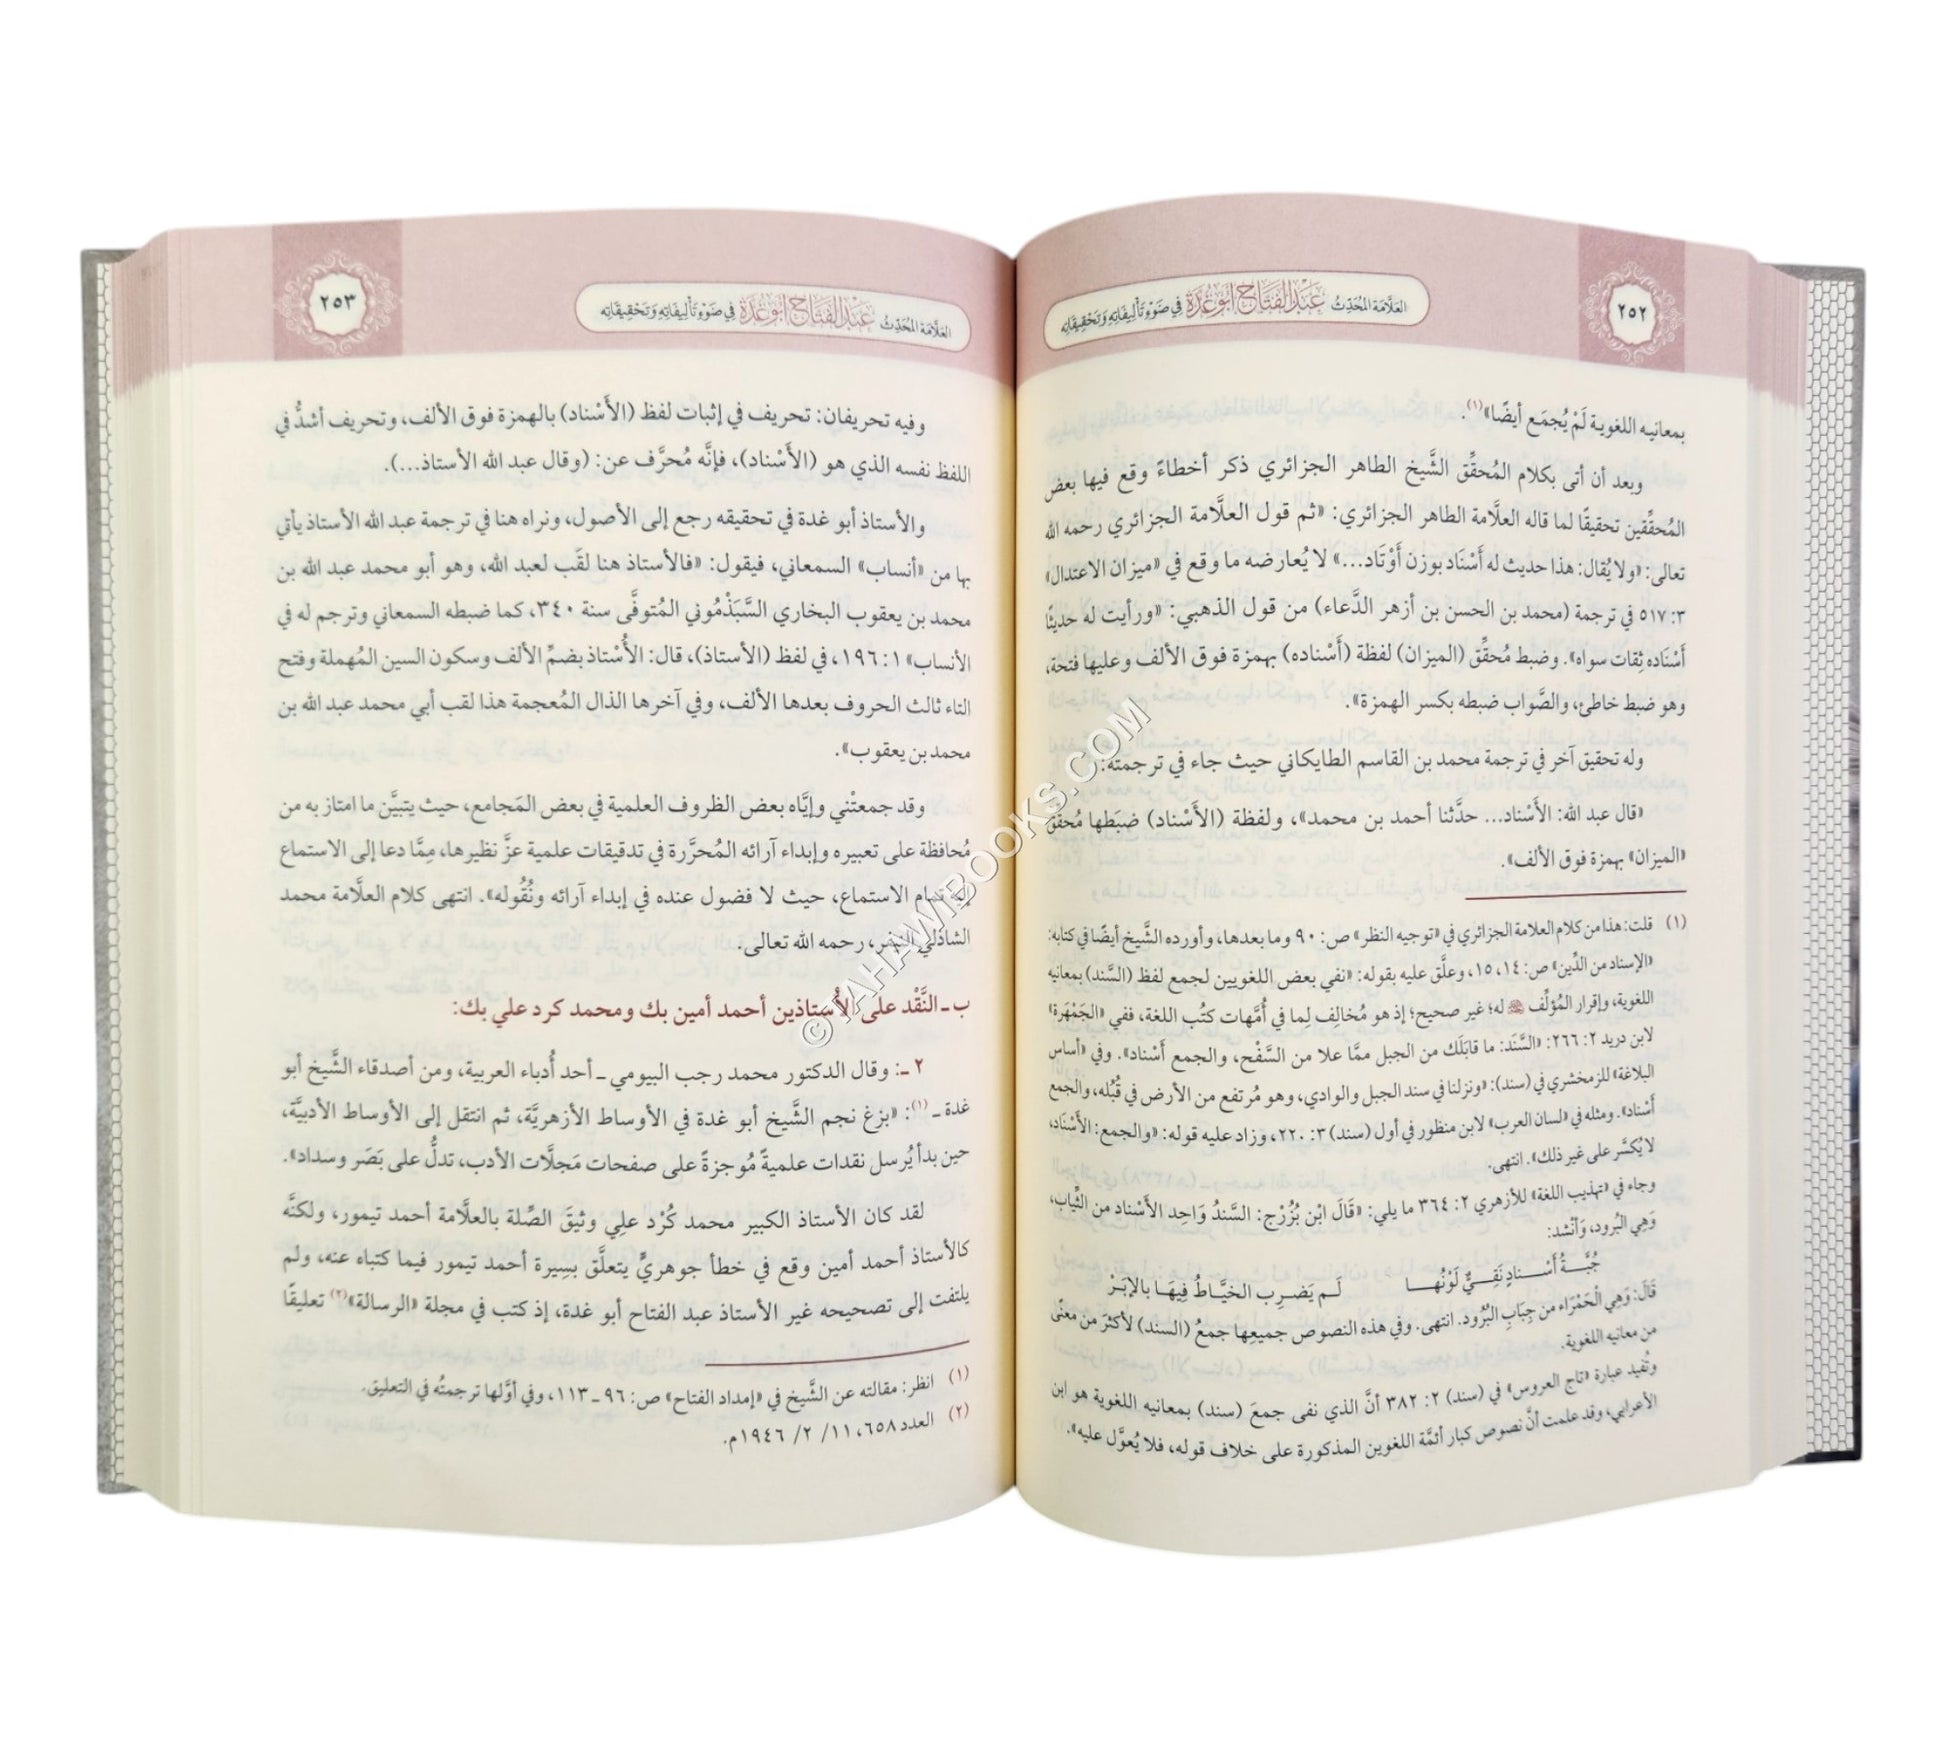 ٢٥٢
العَلَّامَة المُحَدِّث عَبْد الفَتَّاح أبُو غُدَّة فِي ضَوْءِ تَأْلِيفَاتِهِ وَتَحْقِيقَاتِه
بمعانيه اللغوية لَمْ يُجمَع أيضًا»(١).
وبعد أن أتى بكلام المُحقِّق الشَّيخ الطاهر الجزائري ذكر أخطاءً وقع فيها بعض
المُحقِّقين تحقيقًا لما قاله العلَّامة الطاهر الجزائري: «ثم قول العلَّامة الجزائري رحمه الله
تعالى: «ولا يُقال: هذا حديث له أَسْنَاد بوزن أَوْتَاد...» لا يُعارضه ما وقع في «ميزان الاعتدال»
٣: ٥١٧ في ترجمة (محمد بن الحسن بن أزهر الدَّعاء) من قول الذهبي: «ورأيت له حديثًا
أَسْنَاده ثِقات سواه». وضبط مُحقِّق (الميزان) لفظة (أَسْناده) بهمزة فوق الألف وعليها فتحة،
وهو ضبط خاطئ، والصَّواب ضبطه بكسر الهمزة».
وله تحقيق آخر في ترجمة محمد بن القاسم الطايكاني حيث جاء في ترجمته:
«قال عبد الله: الأَسْناد... حدَّثنا أحمد بن محمد»، ولفظة (الأَسْناد) ضبَطها مُحقِّق
«الميزان» بهمزة فوق الألف».
(١) قلت: هذا من كلام العلامة الجزائري في «توجيه النظر» ص: ٩٠ وما بعدها، وأورده الشَّيخ أيضًا في كتابه:
«الإسناد من الدِّين» ص: ١٤، ١٥، وعلَّق عليه بقوله: «نفي بعض اللغويين لجمع لفظ (السَّند) بمعانيه
اللغوية، وإقرار المُؤلِّف له؛ غير صحيح؛ إذ هو مُخالِف لِما في أُمَّهات كتُب اللغة، ففي «الجَمْهَرة»
لابن دريد ٢: ٢٦٦: «السَّنَد: ما قابَلَك من الجبل ممَّا علا من السَّفْح، والجمع أَسْناد». وفي «أساس
البلاغة» للزمخشري في (سند): «ونزلنا في سند الجبل والوادي، وهو مُرتفع من الأرض في قُبُله، والجمع
أَسْناد». ومثله في «لسان العرب» لابن منظور في أول (سند) ٣: ٢٢٠، وزاد عليه قوله: «والجمع: الأَسْناد،
لا يُكسَّر على غير ذلك». انتهى.
وجاء في «تهذيب اللغة» للأزهري ٢: ٣٦٤ ما يلي: «قَالَ ابْن بُزُرْج: السَّندُ وَاحِد الأَسْناد من الثِّياب،
وَهِي البُرود، وَأنْشد:
جُبَّـــةُ أَسْـــنادٍ نَقِـــيٌّ لَوْنُهـــا لَـم يَضـرِب الخيَّـاطُ فِيهَـا بالإبَرْ
قَالَ: وَهِي الْحَمْرَاء من جِبَابِ البُرُود. انتهى. وفي هذه النصوص جميعِها جمعُ (السند) لأكثرَ من معنًى
من معانيه اللغوية.
وتُفيد عبارة «تاج العروس» في (سند) ٢: ٣٨٢ أنَّ الذي نفى جمعَ (سند) بمعانيه اللغوية هو ابن
الأعرابي، وقد علمت أنَّ نصوص كبار أئمَّة اللغوين المذكورة على خلاف قوله، فلا يُعوَّل عليه».
٢٥٣
العَلَّامَة المُحَدِّث عَبْد الفَتَّاح أبُو غُدَّة فِي ضَوْءِ تَأْلِيفَاتِهِ وَتَحْقِيقَاتِه
وفيه تحريفان: تحريف في إثبات لفظ (الأَسْناد) بالهمزة فوق الألف، وتحريف أشدُّ في
اللفظ نفسه الذي هو (الأَسْناد)، فإنَّه مُحرَّف عن: (وقال عبد الله الأستاذ...).
والأستاذ أبو غدة في تحقيقه رجع إلى الأصول، ونراه هنا في ترجمة عبد الله الأستاذ يأتي
بها من «أنساب» السمعاني، فيقول: «فالأستاذ هنا لقَب لعبد الله، وهو أبو محمد عبد الله بن
محمد بن يعقوب البخاري السَّبَذْمُوني المُتوفَّى سنة ٣٤٠، كما ضبطه السمعاني وترجم له في
الأنساب» ١: ١٩٦، في لفظ (الأستاذ)، قال: الأُسْتاذ بضمِّ الألف وسكون السين المُهملة وفتح
التاء ثالث الحروف بعدها الألف، وفي آخرها الذال المُعجمة هذا لقب أبي محمد عبد الله بن
محمد بن يعقوب».
وقد جمعتْني وإيَّاه بعض الظروف العلمية في بعض المَجامع، حيث يتبيَّن ما امتاز به من
مُحافظة على تعبيره وإبداء آرائه المُحرَّرة في تدقيقات علمية عزَّ نظيرها، مِمَّا دعا إلى الاستماع
إليه تمام الاستماع، حيث لا فضول عنده في إبداء آرائه ونُقُوله». انتهى كلام العلَّامة محمد
الشاذلي النيفر، رحمه الله تعالى.
ب ـ النَّقْد على الأستاذين أحمد أمين بك ومحمد كرد علي بك:
٢ ـ: وقال الدكتور محمد رجب البيومي ـ أحد أُدباء العربية، ومن أصدقاء الشَّيخ أبو
غدة ـ(١): «بزغ نجم الشَّيخ أبو غدة في الأوساط الأزهريَّة، ثم انتقل إلى الأوساط الأدبيَّة،
حين بدأ يُرسل نقدات علميةً مُوجزةً على صفحات مَجلَّات الأدب، تدلُّ على بَصَر وسداد».
لقد كان الأستاذ الكبير محمد كُرْد علي وثيقَ الصِّلة بالعلَّامة أحمد تيمور، ولكنَّه
كالأستاذ أحمد أمين وقع في خطأ جوهريٍّ يتعلَّق بسِيرة أحمد تيمور فيما كتباه عنه، ولم
يلتفت إلى تصحيحه غير الأستاذ عبد الفتاح أبو غدة، إذ كتب في مجلة «الرسالة»(٢) تعليقًا
(١) انظر: مقالته عن الشَّيخ في «إمداد الفتاح» ص: ٩٦ ـ ١١٣، وفي أوَّلها ترجمتُه في التعليق.
(٢) العدد ٦٥٨، ١١/ ٢/ ١٩٤٦م.
© TAHAWIBOOKS.COM